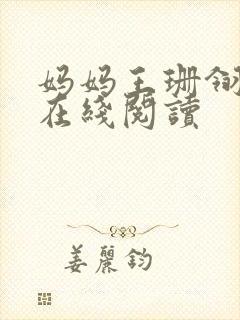 妈妈王珊
在綫閱讀
姜麗鈞